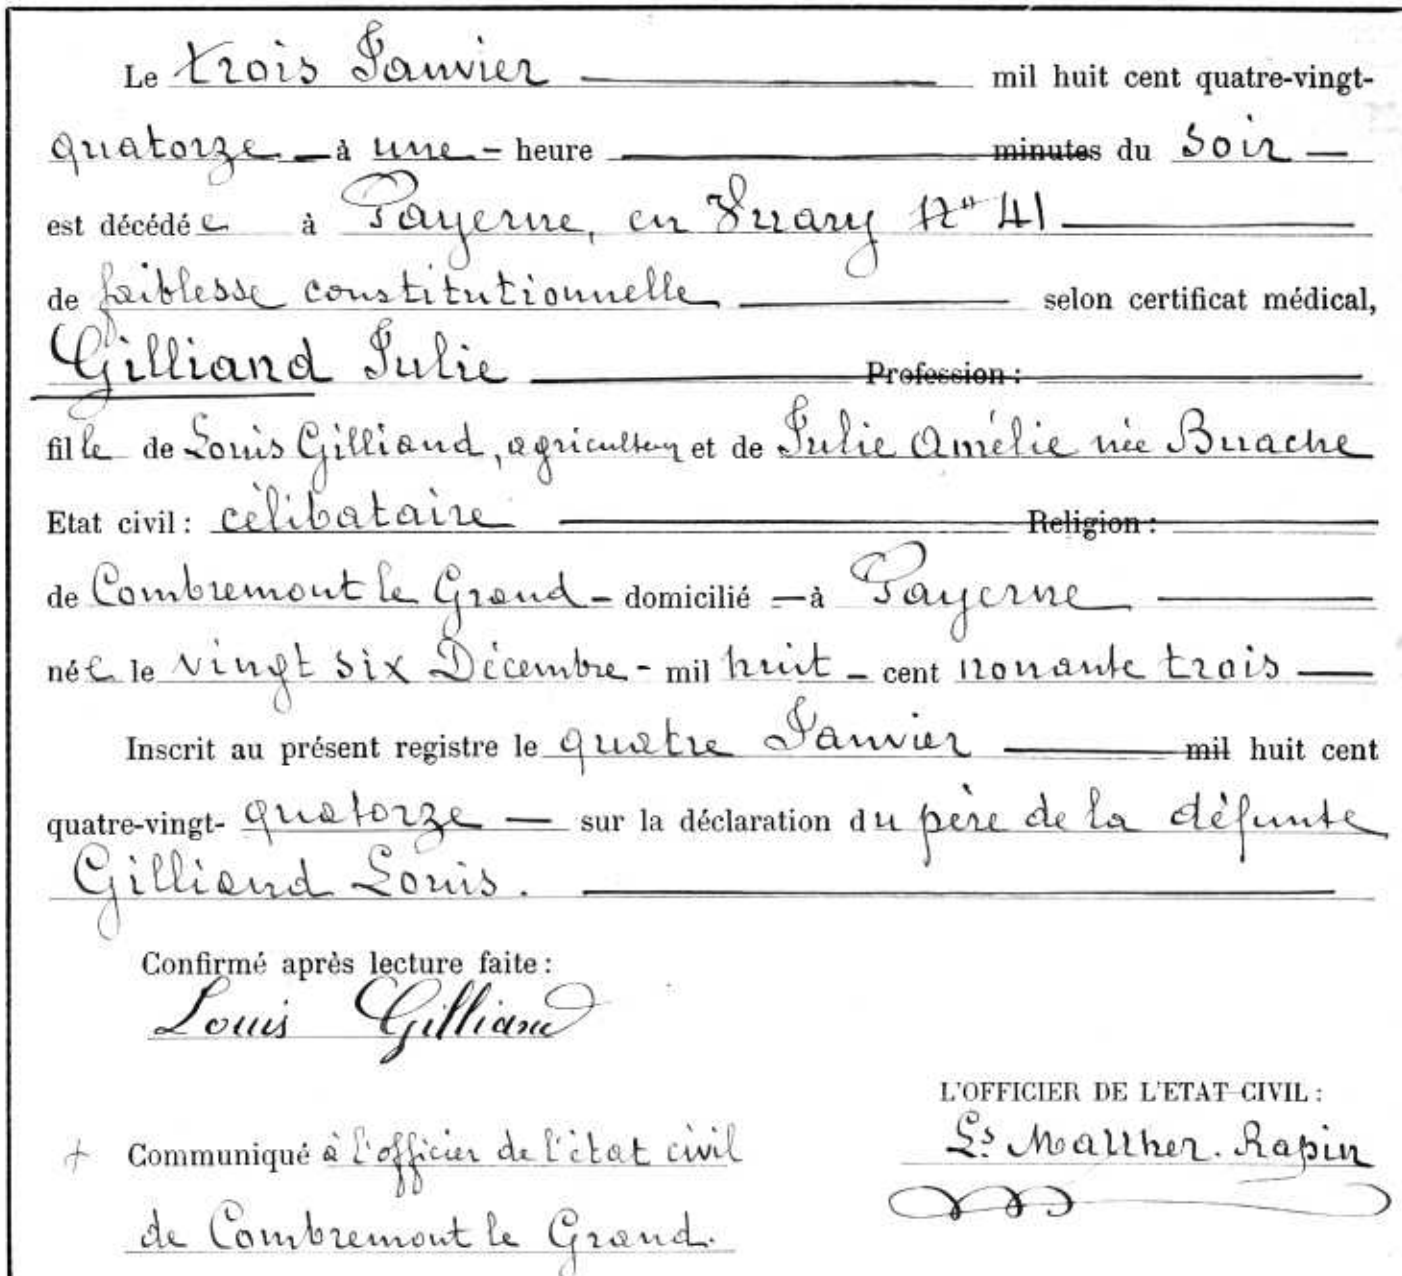 Le trois Janvier mil huit cent quatre-vingt-
quatorze à une heure minutes du soir
est décédée à Payerne, en Vuary No 41
de faiblesse constitutionnelle selon certificat médical,
Gilliand Julie Profession :
fille de Louis Gilliand, agriculteur et de Julie Amélie née Buache
Etat civil : célibataire Religion :
de Combremont le Grand domicilié à Payerne
née le vingt six Décembre mil huit cent nonante trois
Inscrit au présent registre le quatre Janvier mil huit cent
quatre-vingt- quatorze sur la déclaration du père de la défunte
Gilliand Louis.
Confirmé après lecture faite :
Louis Gilliand
L'OFFICIER DE L'ETAT-CIVIL :
Ls Rapin
Communiqué à l'officier de l'état civil
de Combremont le Grand.